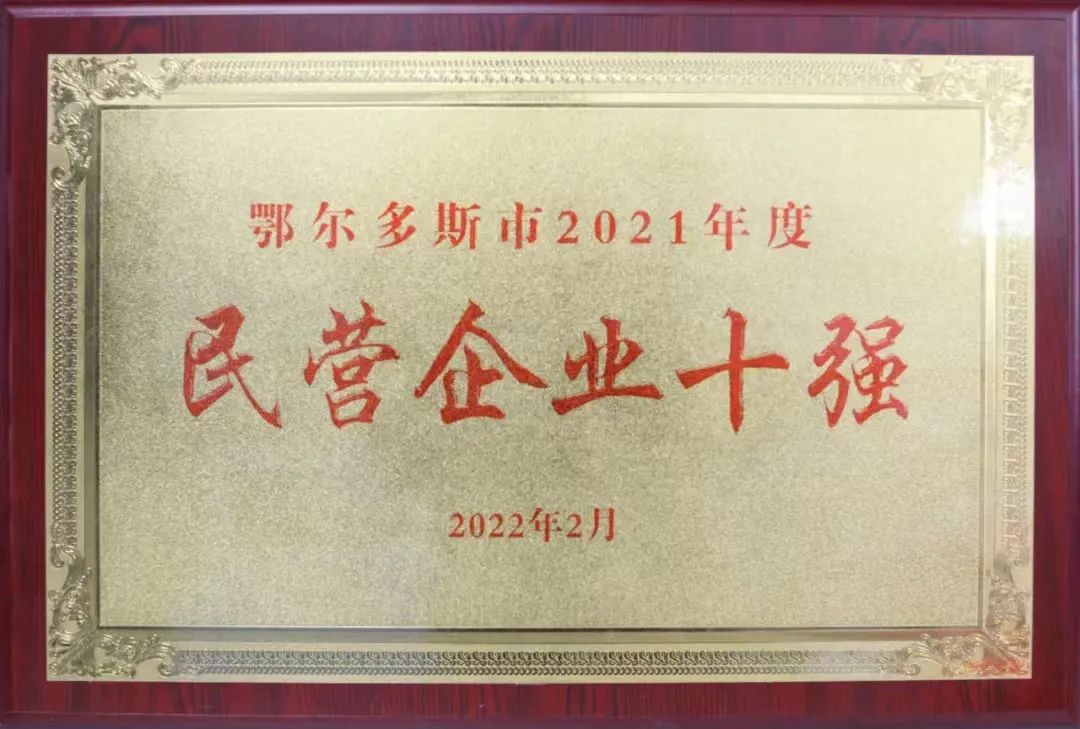 鄂尔多斯市2021年度
民营企业十强
2022年2月